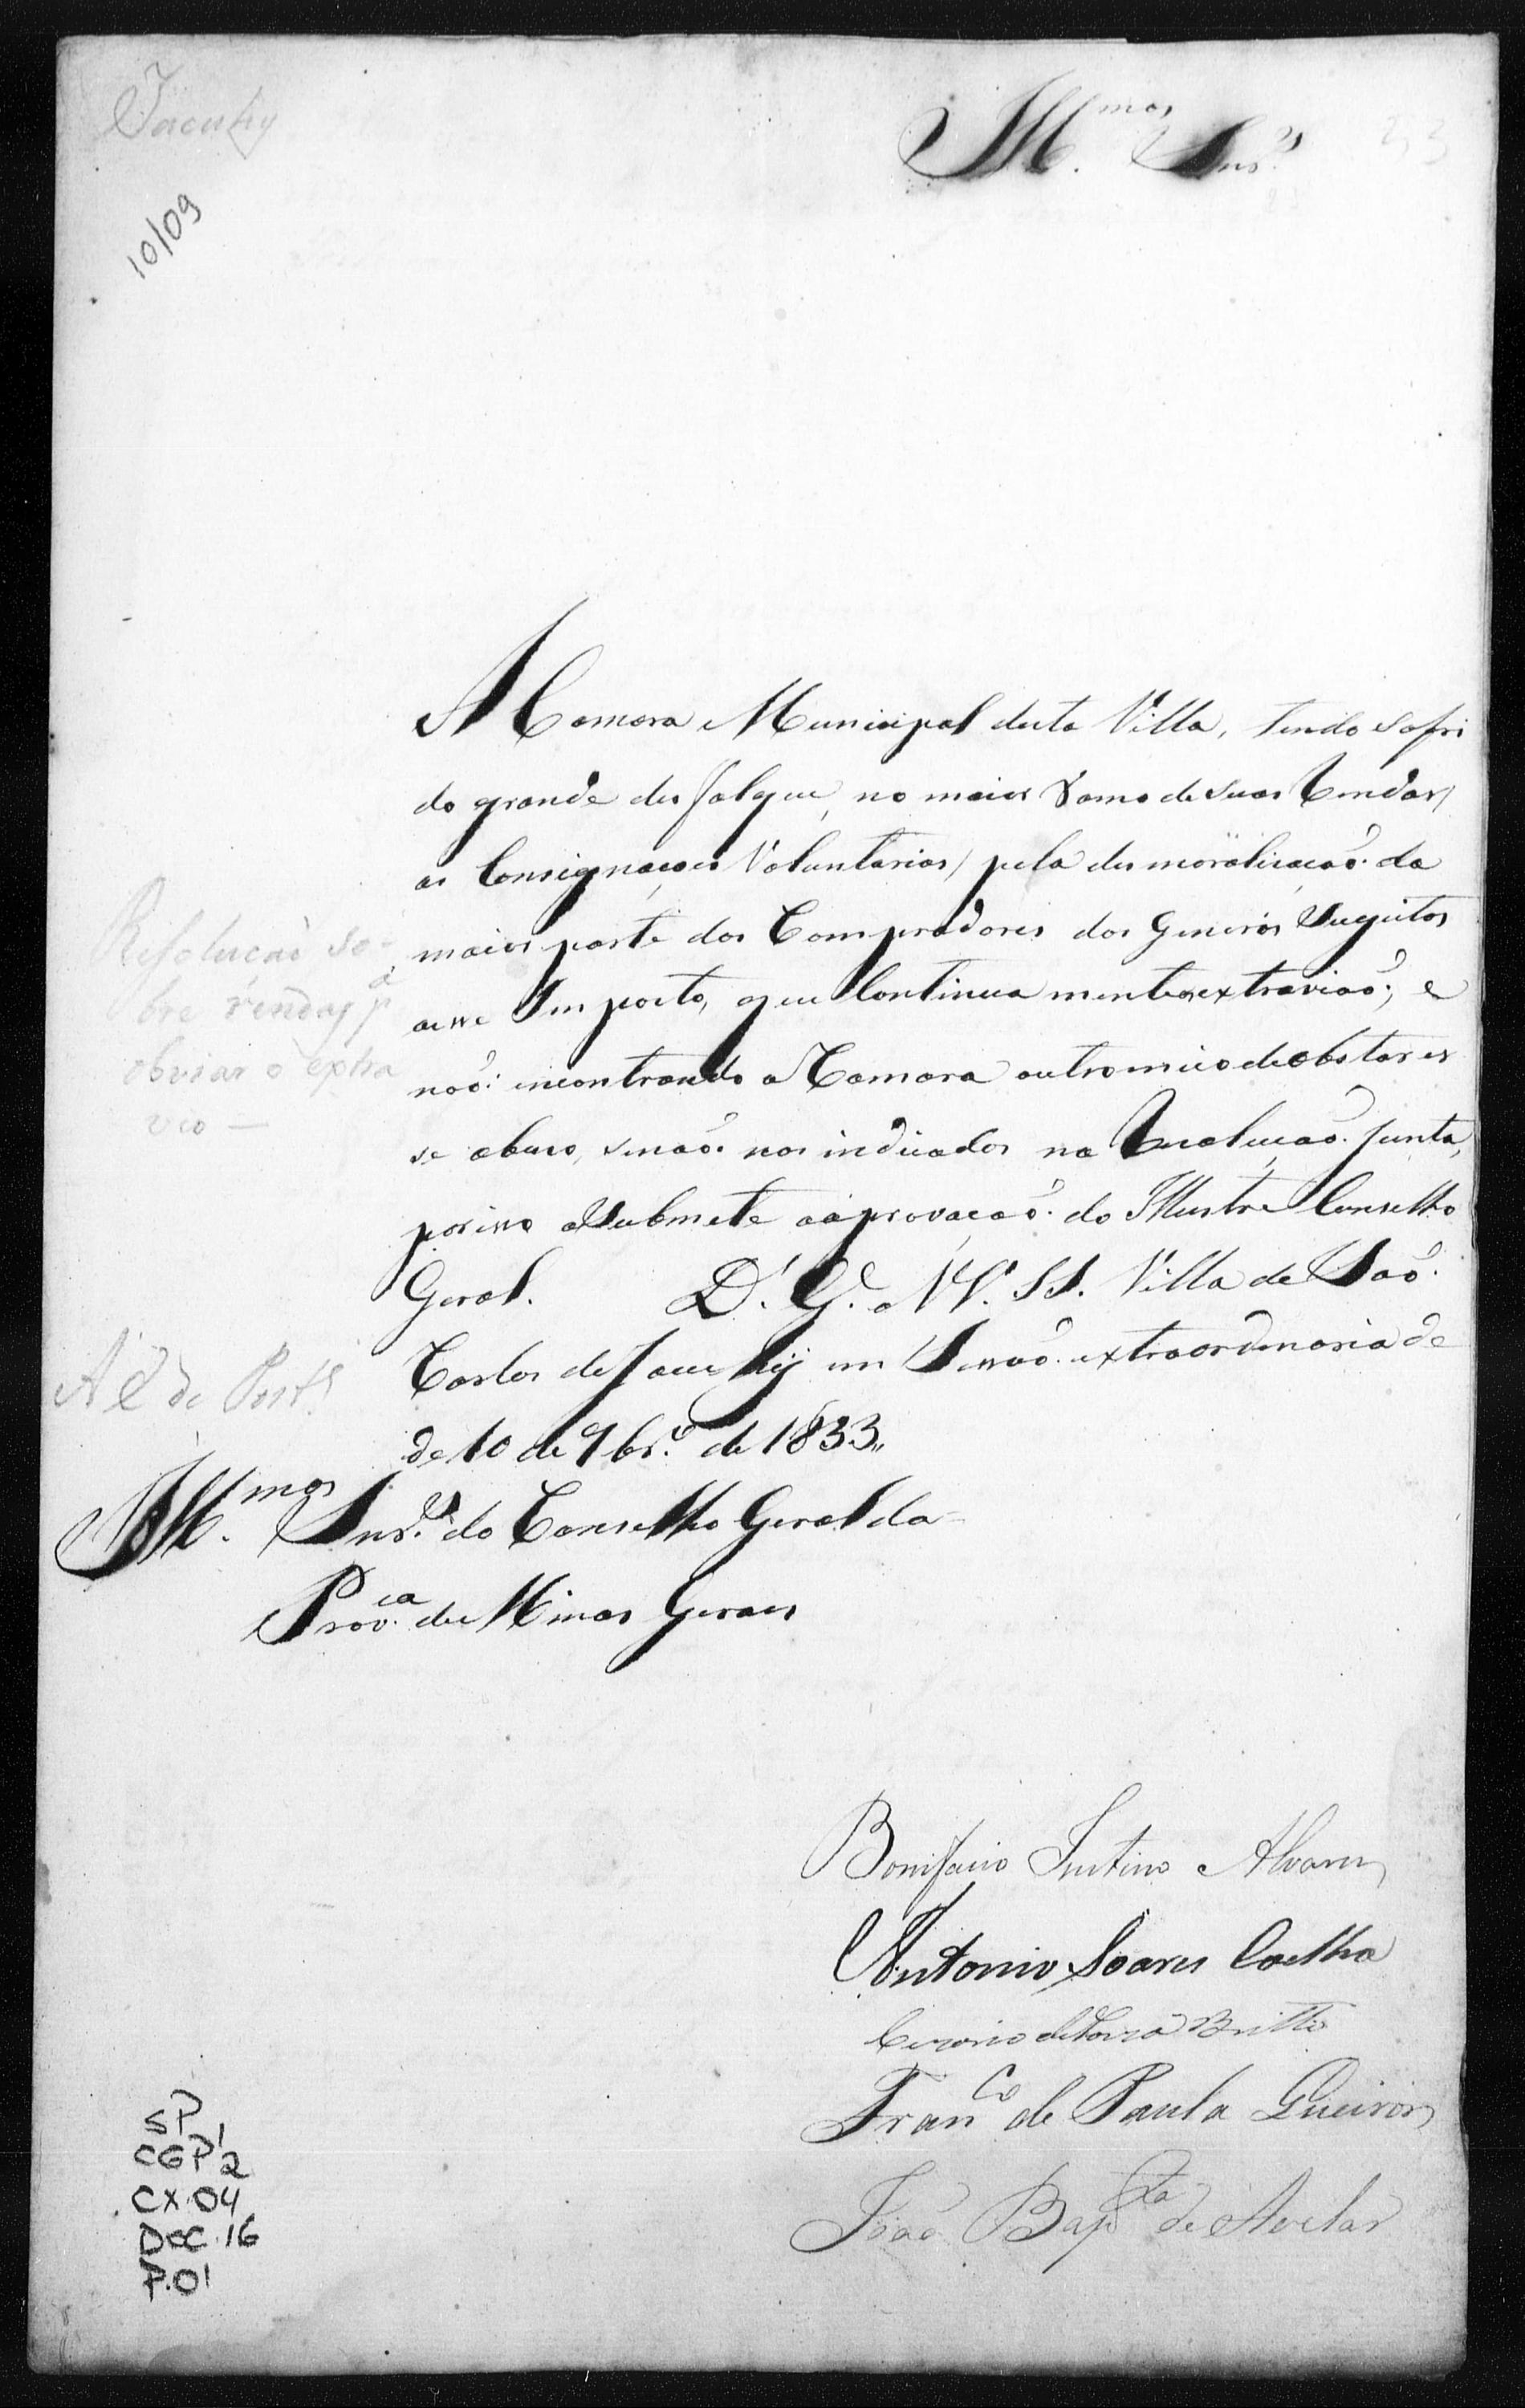 Jacuhy
10/09
Ill.mos Snr.es
33
A Camara Municipal desta Villa, tendo sofri
do grande desfalque, no maior ramo de suas Rendas /
as Consignaçoes Voluntarias / pela desmoralisacaõ da
maior parte dos Compradores dos Generos Sugeitos
aesse Imposto, que Continuamente extraviaõ; e
naõ encontrando a Camara outro meio de obstar es
se abuso, senaõ nos indicados na Resoluçaõ junta,
por isso a Submete aaprovaçaõ do Illustre Conselho
Geral. D.s G.e a VV. SS. Villa de Saõ
Carlos de Jacuhÿ em Sessaõ extraordinaria de
de 10 de 9br.o de 1833,,
Resoluçaò so-
bre rendas p.a
obviar o extra
vio —
Á C de Post.s
Ill.mos Snr.es do Conselho Geral da
Prov.ca de Minas Geraes
Bonifacio Justino Alvares
Antonio Soares Coelho
Britto
Fran.co de Paula Queiros
Joaõ Bap.ta de Avelar
SP
CGP 1/2
CX.04
DOC.16
P.01